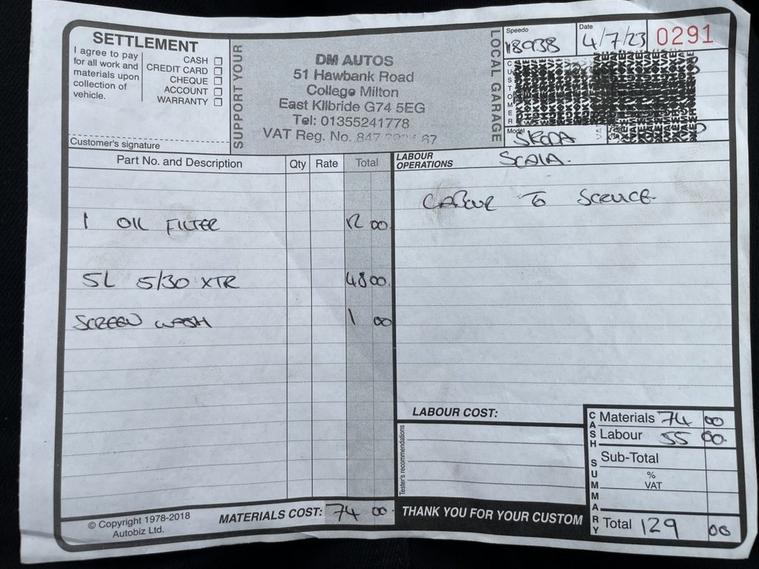 SETTLEMENT
I agree to pay
for all work and
materials upon
collection of
vehicle.
CASH
CREDIT CARD
CHEQUE
ACCOUNT
WARRANTY
Customer's signature
SUPPORT YOUR
DM AUTOS
51 Hawbank Road
College Milton
East Kilbride G74 5EG
Tel: 01355241778
VAT Reg. No. 847
67
LOCAL GARAGE
Speedo
18938
Date
4/7/23
0291
CUSTOMER
Model
SKODA
SCALA.
Part No. and Description Qty Rate Total
1 OIL FILTER 12 00
5L 5/30 XTR 48 00
SCREEN WASH 1 00
MATERIALS COST: 74 00
© Copyright 1978-2018
Autobiz Ltd.
LABOUR
OPERATIONS
LABOUR TO SERVICE
LABOUR COST:
Tester's recommendations
CASH SUMMARY
Materials 74 00
Labour 55 00
Sub-Total
%
VAT
Total 129 00
THANK YOU FOR YOUR CUSTOM